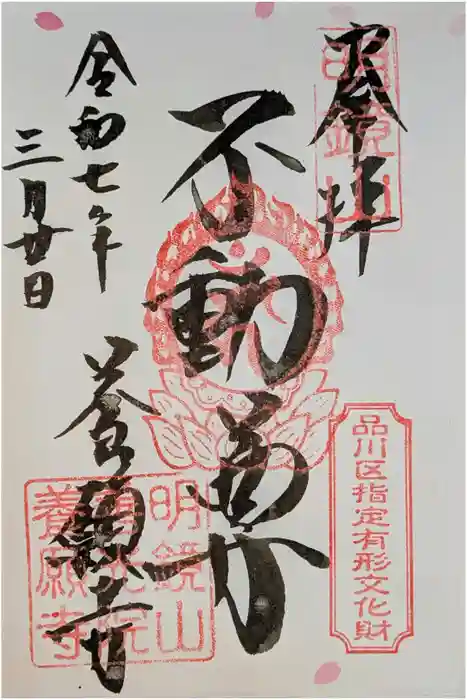 奉拝
明鏡山
不動尊
品川区指定有形文化財
養願寺
明鏡山
善光院
養願寺
令和七年
三月廿日